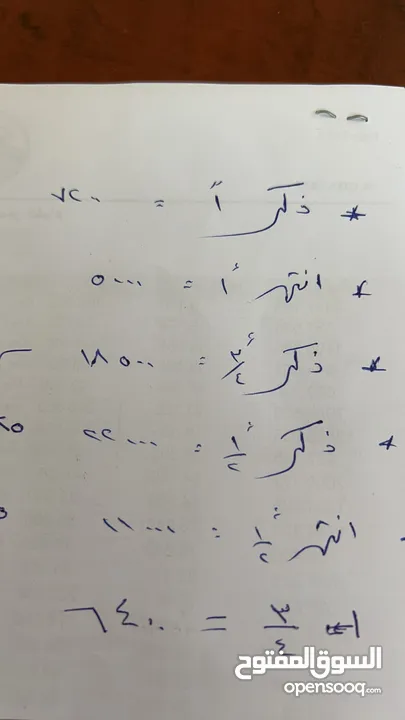 * ذكر "1 = ٧٢٠٠
* انتهر "1 = ٥٠٠٠
* ذكر "٣/٢ = ١٨٥٠٠
* ذكر "١/٢ = ٢٢٠٠٠
انتهر "١/٢ = ١١٠٠٠
* ٣/٤ = ٦٤٠٠
السوق المفتوح
opensooq.com